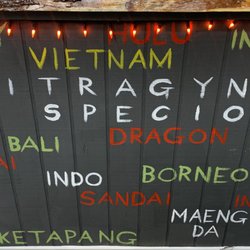 HULU IN
VIETNAM
ITRAGYN
SPECIO
BALI DRAGON
AI
INDO BORNEO
SANDAI IN
MAENG
DA
KETAPANG